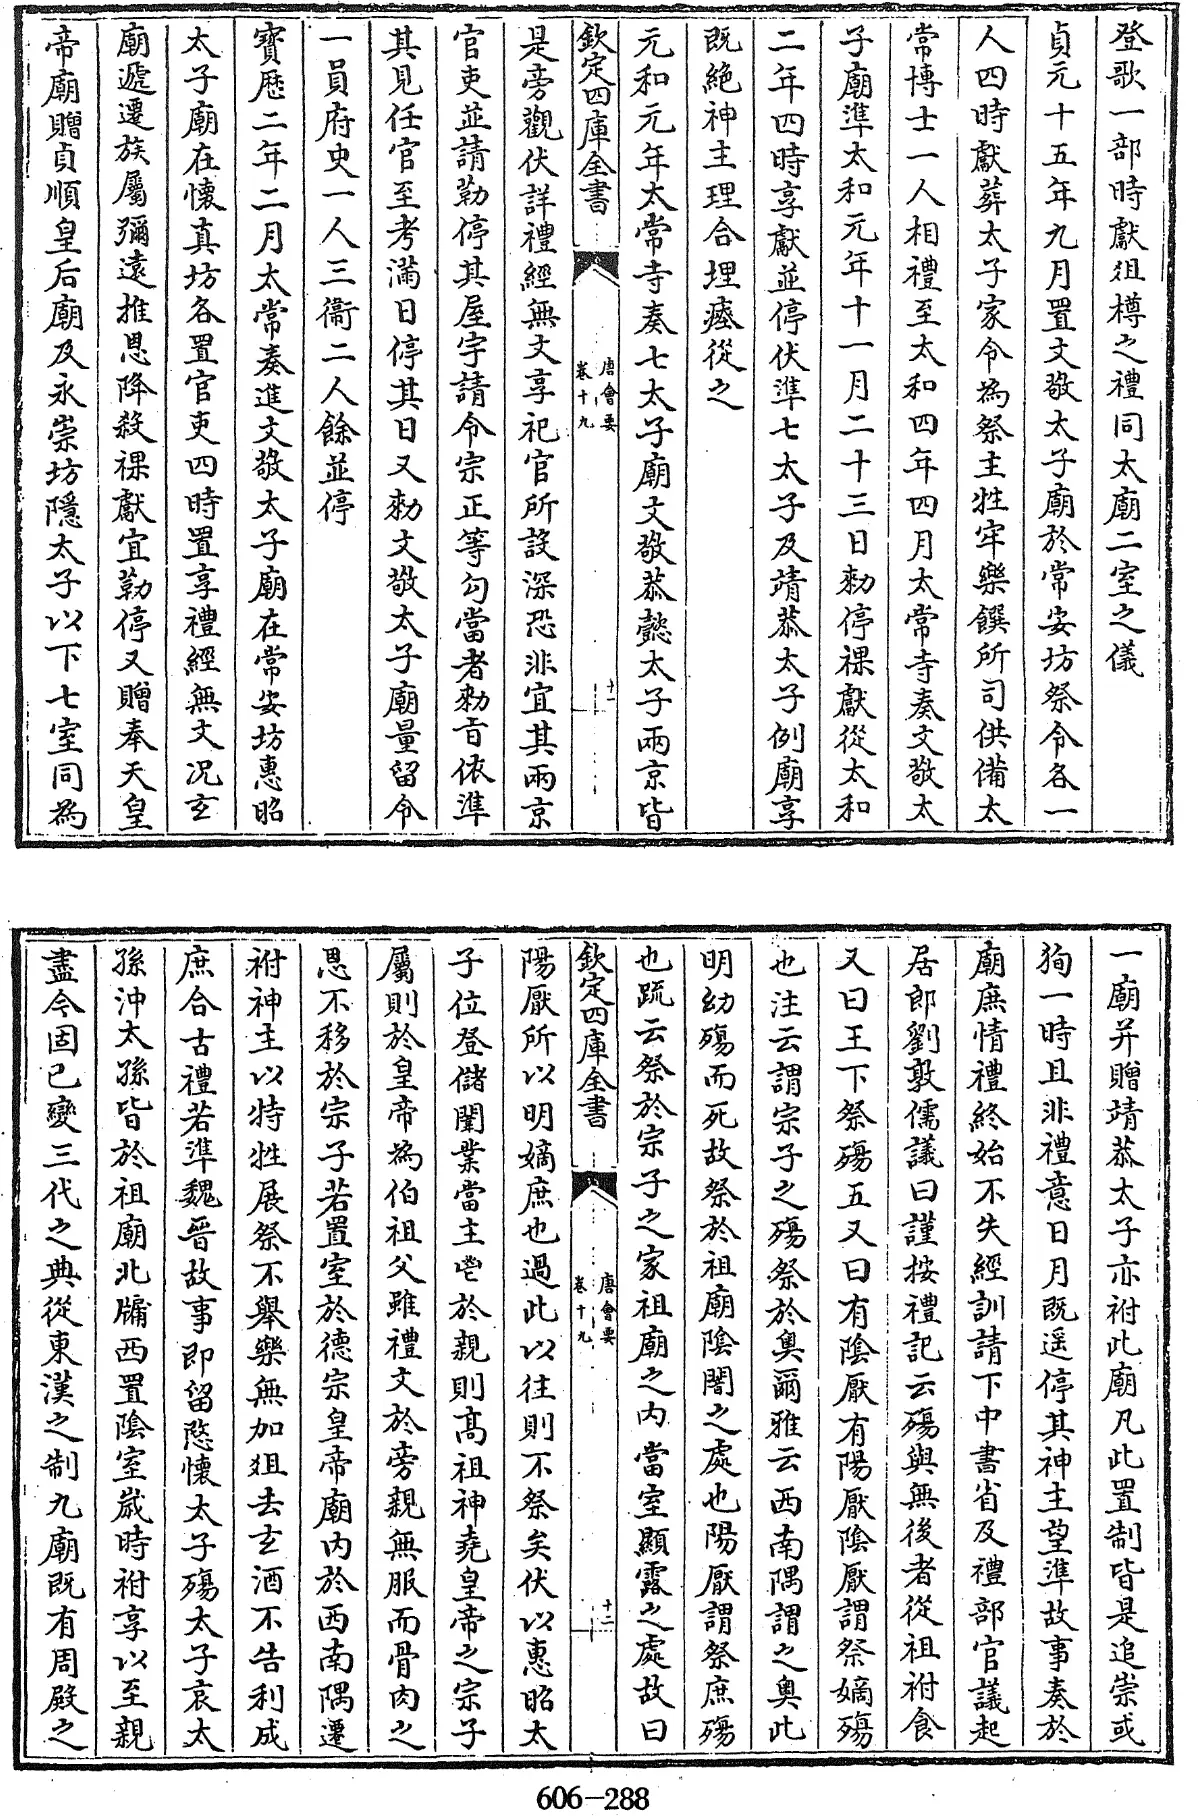 登歌一部時獻俎樽之禮同太廟二室之儀
貞元十五年九月置文敬太子廟於常安坊祭令各一
人四時獻葬太子家令為祭主牲牢樂饌所司供備太
常博士一人相禮至太和四年四月太常寺奏文敬太
子廟準太和元年十一月二十三日勑停祼獻從太和
二年四時享獻並停伏準七太子及靖恭太子例廟享
既絶神主理合埋瘞從之
元和元年太常寺奏七太子廟文敬恭懿太子兩京皆
欽定四庫全書
唐會要
卷十九
十一
是旁觀伏詳禮經無文享祀官所設深恐非宜其兩京
官吏並請勒停其屋宇請令宗正等勾當者勑旨依準
其見任官至考滿日停其日又勑文敬太子廟量留令
一員府史一人三衞二人餘並停
寳厯二年二月太常奏進文敬太子廟在常安坊惠昭
太子廟在懷真坊各置官吏四時置享禮經無文况玄
廟遞遷族屬彌遠推恩降殺祼獻宜勒停又贈奉天皇
帝廟贈貞順皇后廟及永崇坊隱太子以下七室同為
一廟并贈靖恭太子亦祔此廟凡此置制皆是追崇或
狥一時且非禮意日月既遥停其神主望準故事奏於
廟庶情禮終始不失經訓請下中書省及禮部官議起
居郎劉敦儒議曰謹按禮記云殤與無後者從祖祔食
又曰王下祭殤五又曰有陰厭有陽厭陰厭謂祭嫡殤
也注云謂宗子之殤祭於奥爾雅云西南隅謂之奥此
明幼殤而死故祭於祖廟陰闇之處也陽厭謂祭庶殤
也䟽云祭於宗子之家祖廟之内當室顯露之處故曰
欽定四庫全書
唐會要
卷十九
十二
陽厭所以明嫡庶也過此以往則不祭矣伏以惠昭太
子位登儲闈業當主鬯於親則髙祖神堯皇帝之宗子
屬則於皇帝為伯祖父雖禮文於旁親無服而骨肉之
恩不移於宗子若置室於德宗皇帝廟内於西南隅遷
祔神主以特牲展祭不舉樂無加俎去玄酒不告利成
庶合古禮若準魏晉故事即留愍懷太子殤太子哀太
孫沖太孫皆於祖廟北牖西置陰室歲時祔享以至親
盡今固已變三代之典從東漢之制九廟既有周殿之
606-288